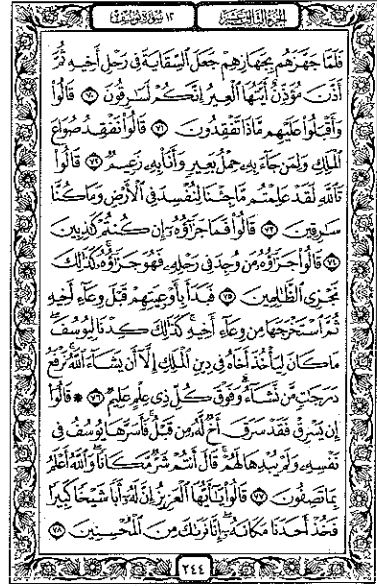 الجزء الثالث عشر
١٢ سورة يوسف
فَلَمَّا جَهَّزَهُم بِجَهَازِهِمْ جَعَلَ ٱلسِّقَايَةَ فِى رَحْلِ أَخِيهِ ثُمَّ
أَذَّنَ مُؤَذِّنٌ أَيَّتُهَا ٱلْعِيرُ إِنَّكُمْ لَسَٰرِقُونَ ٧٠ قَالُوا۟
وَأَقْبَلُوا۟ عَلَيْهِم مَّاذَا تَفْقِدُونَ ٧١ قَالُوا۟ نَفْقِدُ صُوَاعَ
ٱلْمَلِكِ وَلِمَن جَآءَ بِهِۦ حِمْلُ بَعِيرٍ وَأَنَا۠ بِهِۦ زَعِيمٌ ٧٢ قَالُوا۟
تَٱللَّهِ لَقَدْ عَلِمْتُم مَّا جِئْنَا لِنُفْسِدَ فِى ٱلْأَرْضِ وَمَا كُنَّا
سَٰرِقِينَ ٧٣ قَالُوا۟ فَمَا جَزَٰٓؤُهُۥٓ إِن كُنتُمْ كَٰذِبِينَ
٧٤ قَالُوا۟ جَزَٰٓؤُهُۥ مَن وُجِدَ فِى رَحْلِهِۦ فَهُوَ جَزَٰٓؤُهُۥ كَذَٰلِكَ
نَجْزِى ٱلظَّٰلِمِينَ ٧٥ فَبَدَأَ بِأَوْعِيَتِهِمْ قَبْلَ وِعَآءِ أَخِيهِ
ثُمَّ ٱسْتَخْرَجَهَا مِن وِعَآءِ أَخِيهِ كَذَٰلِكَ كِدْنَا لِيُوسُفَ
مَا كَانَ لِيَأْخُذَ أَخَاهُ فِى دِينِ ٱلْمَلِكِ إِلَّآ أَن يَشَآءَ ٱللَّهُ نَرْفَعُ
دَرَجَٰتٍ مَّن نَّشَآءُ وَفَوْقَ كُلِّ ذِى عِلْمٍ عَلِيمٌ ٧٦ ۞ قَالُوٓا۟
إِن يَسْرِقْ فَقَدْ سَرَقَ أَخٌ لَّهُۥ مِن قَبْلُ فَأَسَرَّهَا يُوسُفُ فِى
نَفْسِهِۦ وَلَمْ يُبْدِهَا لَهُمْ قَالَ أَنتُمْ شَرٌّ مَّكَانًا وَٱللَّهُ أَعْلَمُ
بِمَا تَصِفُونَ ٧٧ قَالُوا۟ يَٰٓأَيُّهَا ٱلْعَزِيزُ إِنَّ لَهُۥٓ أَبًا شَيْخًا كَبِيرًا
فَخُذْ أَحَدَنَا مَكَانَهُۥٓ إِنَّا نَرَىٰكَ مِنَ ٱلْمُحْسِنِينَ ٧٨
٢٤٤